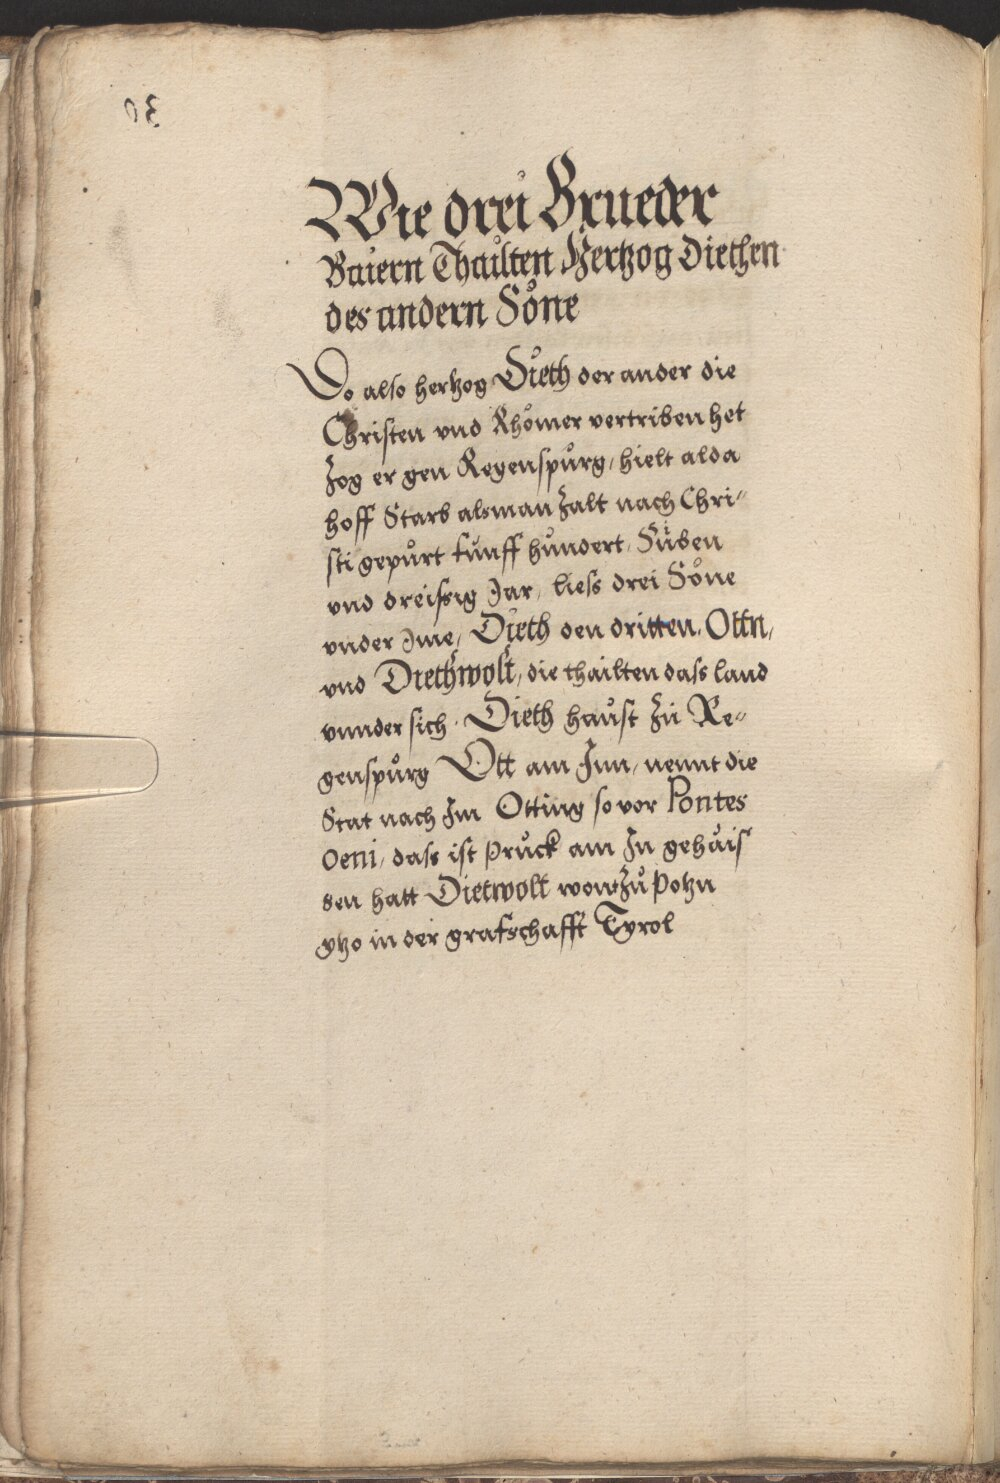 30
Wie drei Brueder
Baiern Thailten Hertzog Diethen
des andern Söne
Do also hertzog Dieth der ander die
Christen vnd Rhömer vertriben het
Zog er gen Regenspůrg, hielt alda
hoff Starb alsman Zalt nach Chri„
sti gepůrt fůnff hůndert, Siiben
vnd dreissig Jar, liess drei Söne
vnder Jme, Dieth den dritten, Ottn,
vnd Diethwolt, die thailten dass land
vnnder sich. Dieth haůst Zů Re„
genspůrg Ott am Jnn, nennt die
Stat nach Jm Otting so vor Pontes
Oeni, dass ist Průck am Jn gehais
sen hatt Dietwolt Zů Potzn
ytzo in der grafschafft Tyrol